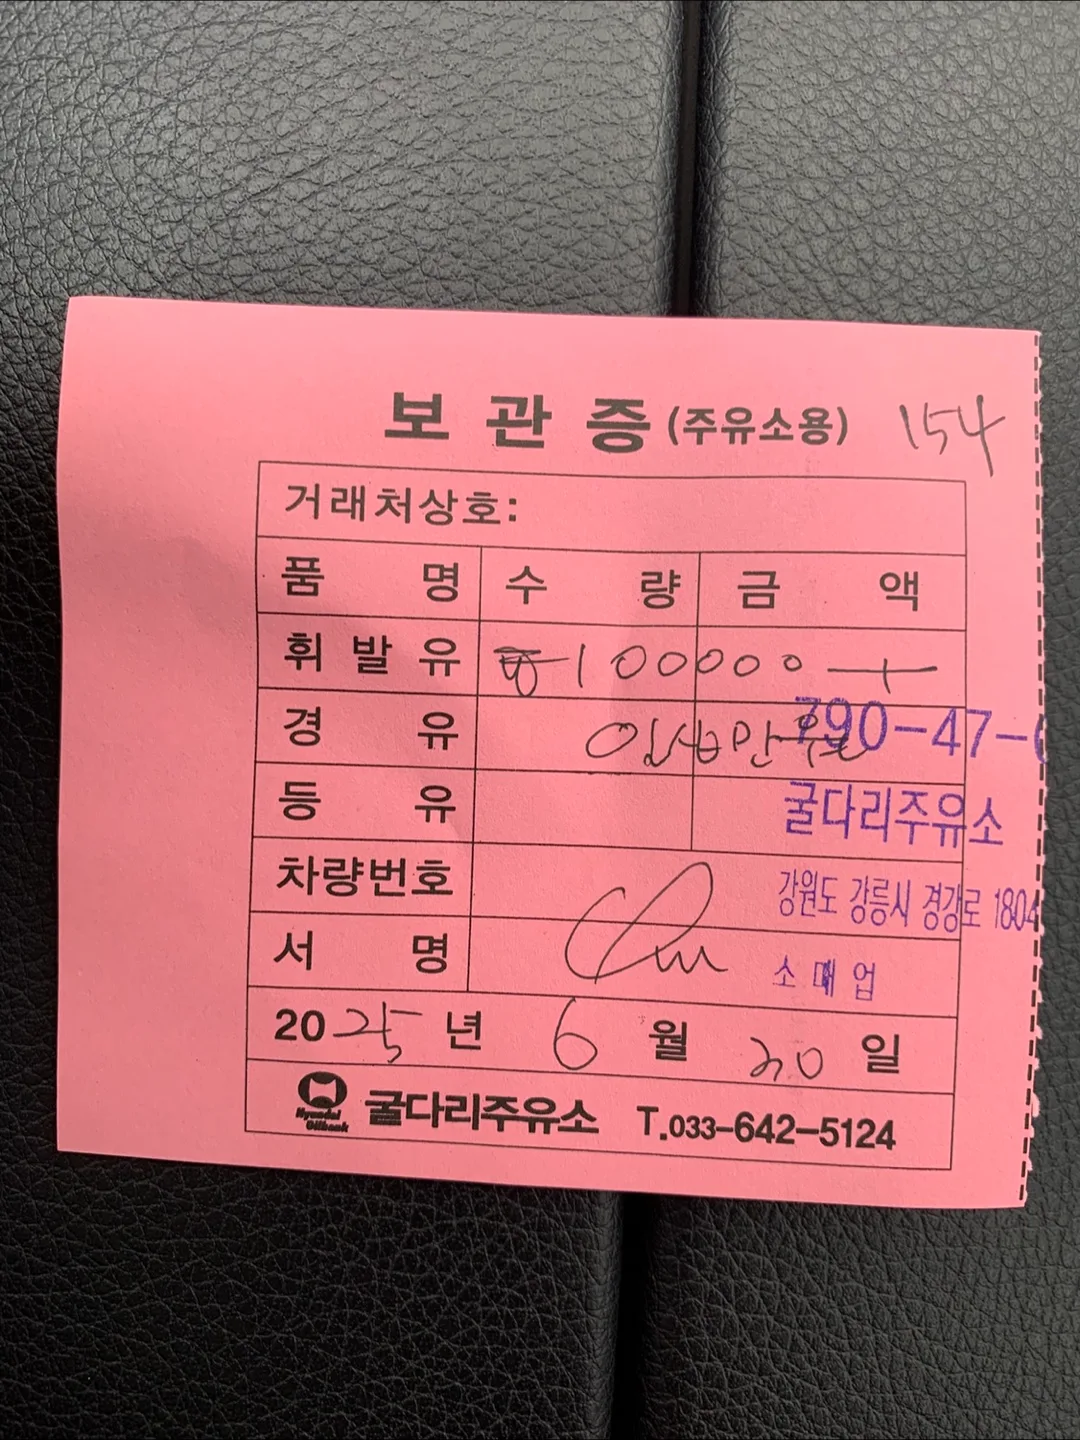 보 관 증 (주유소용) 154
거래처상호:
품 명 수 량 금 액
휘 발 유 100000
경 유 일십만원 790-47-6
등 유 굴다리주유소
차량번호 강원도 강릉시 경강로 1804
서 명 소 매 업
2025 년 6 월 20 일
Hyundai Oilbank 굴다리주유소 T.033-642-5124